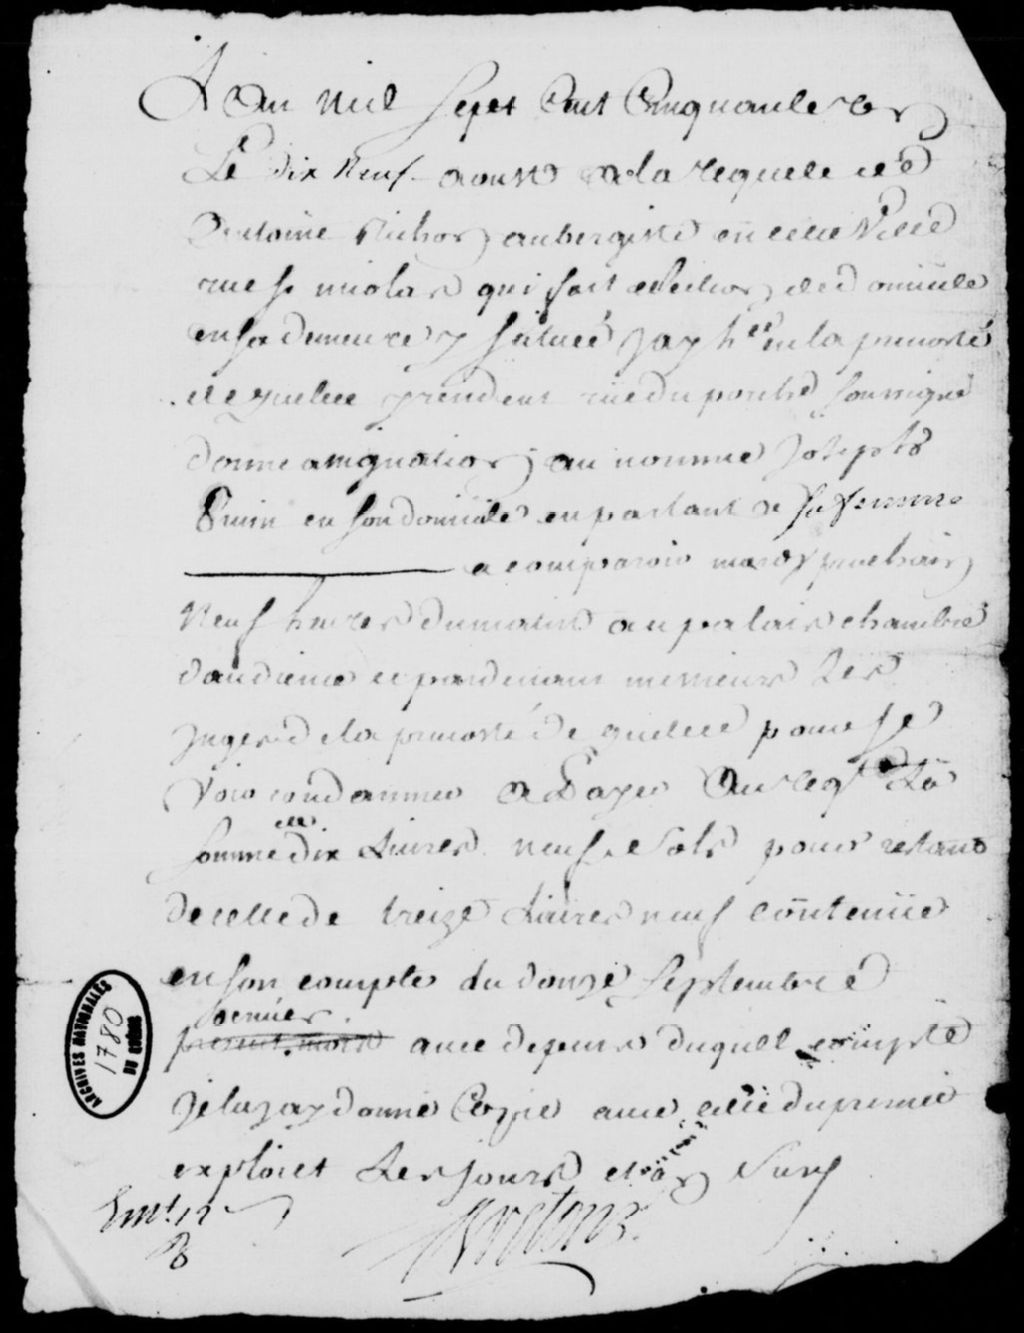 L'an mil sept Cent Cinquante
Le dix Neuf aoust a la requete de
Antoine aubergiste en cette Ville
rue st nicolas qui fait election de domicile
en sa demeure y situeé Jay her en la prevosté
de quebec resident rue du porche soussigné
donne assignation au nommé Joseph
en son domicile en parlant a sa femme
a comparoir mardy prochain
Neuf heures du matin au palais chambre
daudience et pardevant messieurs Les
Juges de la prevosté de quebec pour se
Voir condanner a Payer Au reqt La
somme de dix Livres neuf Sols pour restant
de celle de treize Livres neuf contenüe
en son compte du douze Septembre
dernier
present mois avec depens duquel compte
Je luy ay donné Copie avec celle du present
exploict Les jours et an Susd
ARCHIVES NATIONALES
1780
DU QUÉBEC